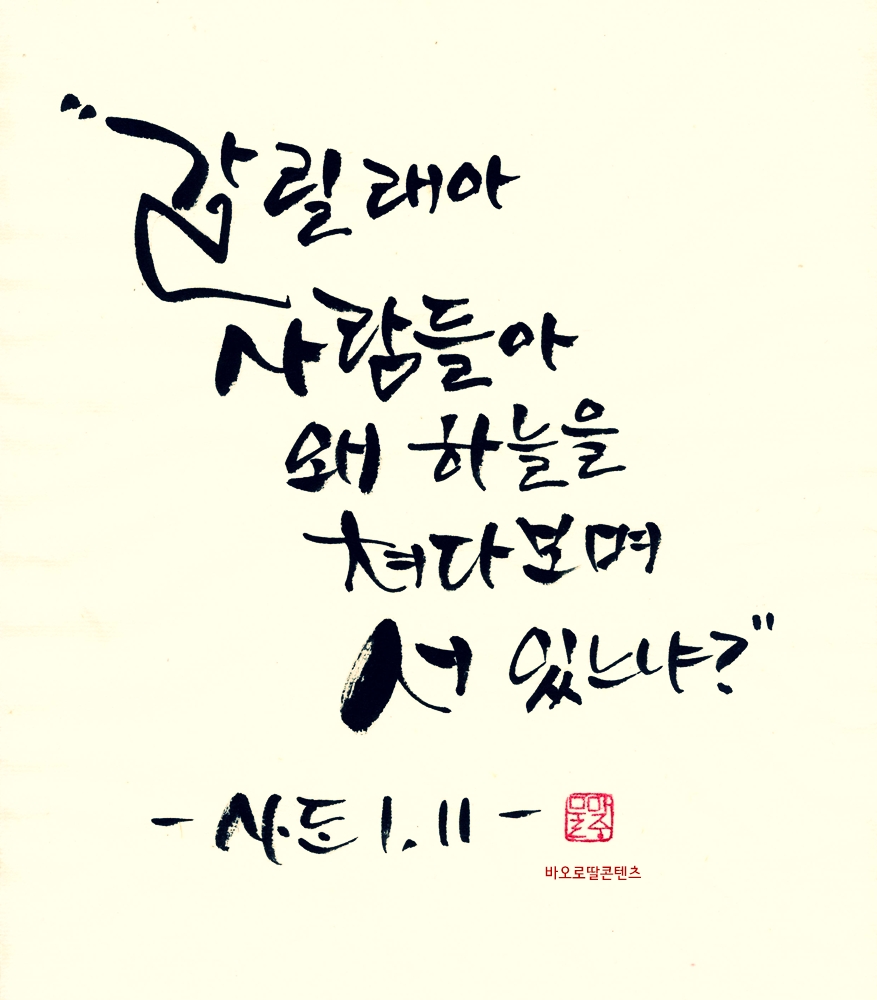 "갈릴래아
사람들아
왜 하늘을
쳐다보며
서 있느냐?"
- 사도 1.11 -
바오로딸콘텐츠